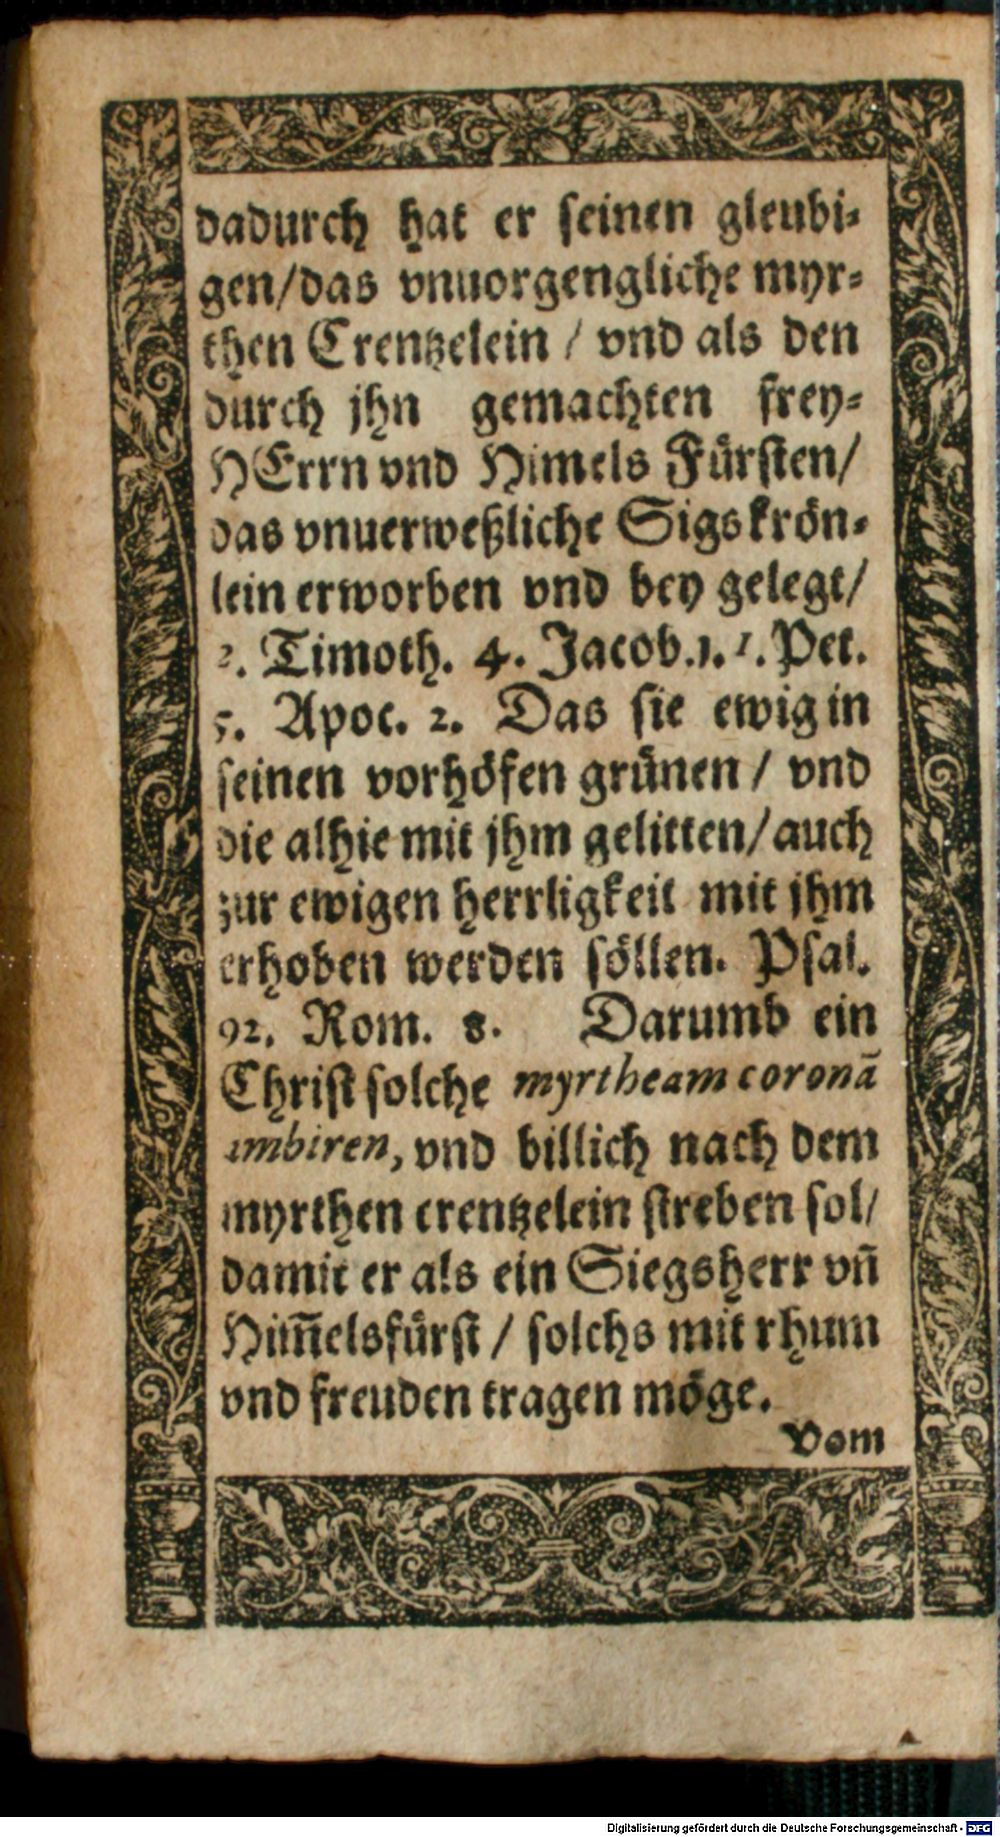 dadurch hat er seinen gleubi⸗
gen/das vnuorgengliche myr⸗
then Crentzelein / vnd als den
durch jhn gemachten frey⸗
HErrn vnd Himels Fürsten/
das vnuerweßliche Sigskrön⸗
lein erworben vnd bey gelegt/
2. Timoth. 4. Jacob.1. 1. Pet.
5. Apoc. 2. Das sie ewig in
seinen vorhöfen grünen / vnd
die alhie mit jhm gelitten/auch
zur ewigen herrligkeit mit jhm
erhoben werden söllen. Psal.
92. Rom. 8. Darumb ein
Christ solche myrtheam coronã
ambiren, vnd billich nach dem
myrthen crentzelein streben sol/
damit er als ein Siegsherr vñ
Him̃elsfürst / solchs mit rhum
vnd freuden tragen möge.
Vom
Digitalisierung gefördert durch die Deutsche Forschungsgemeinschaft - DFG